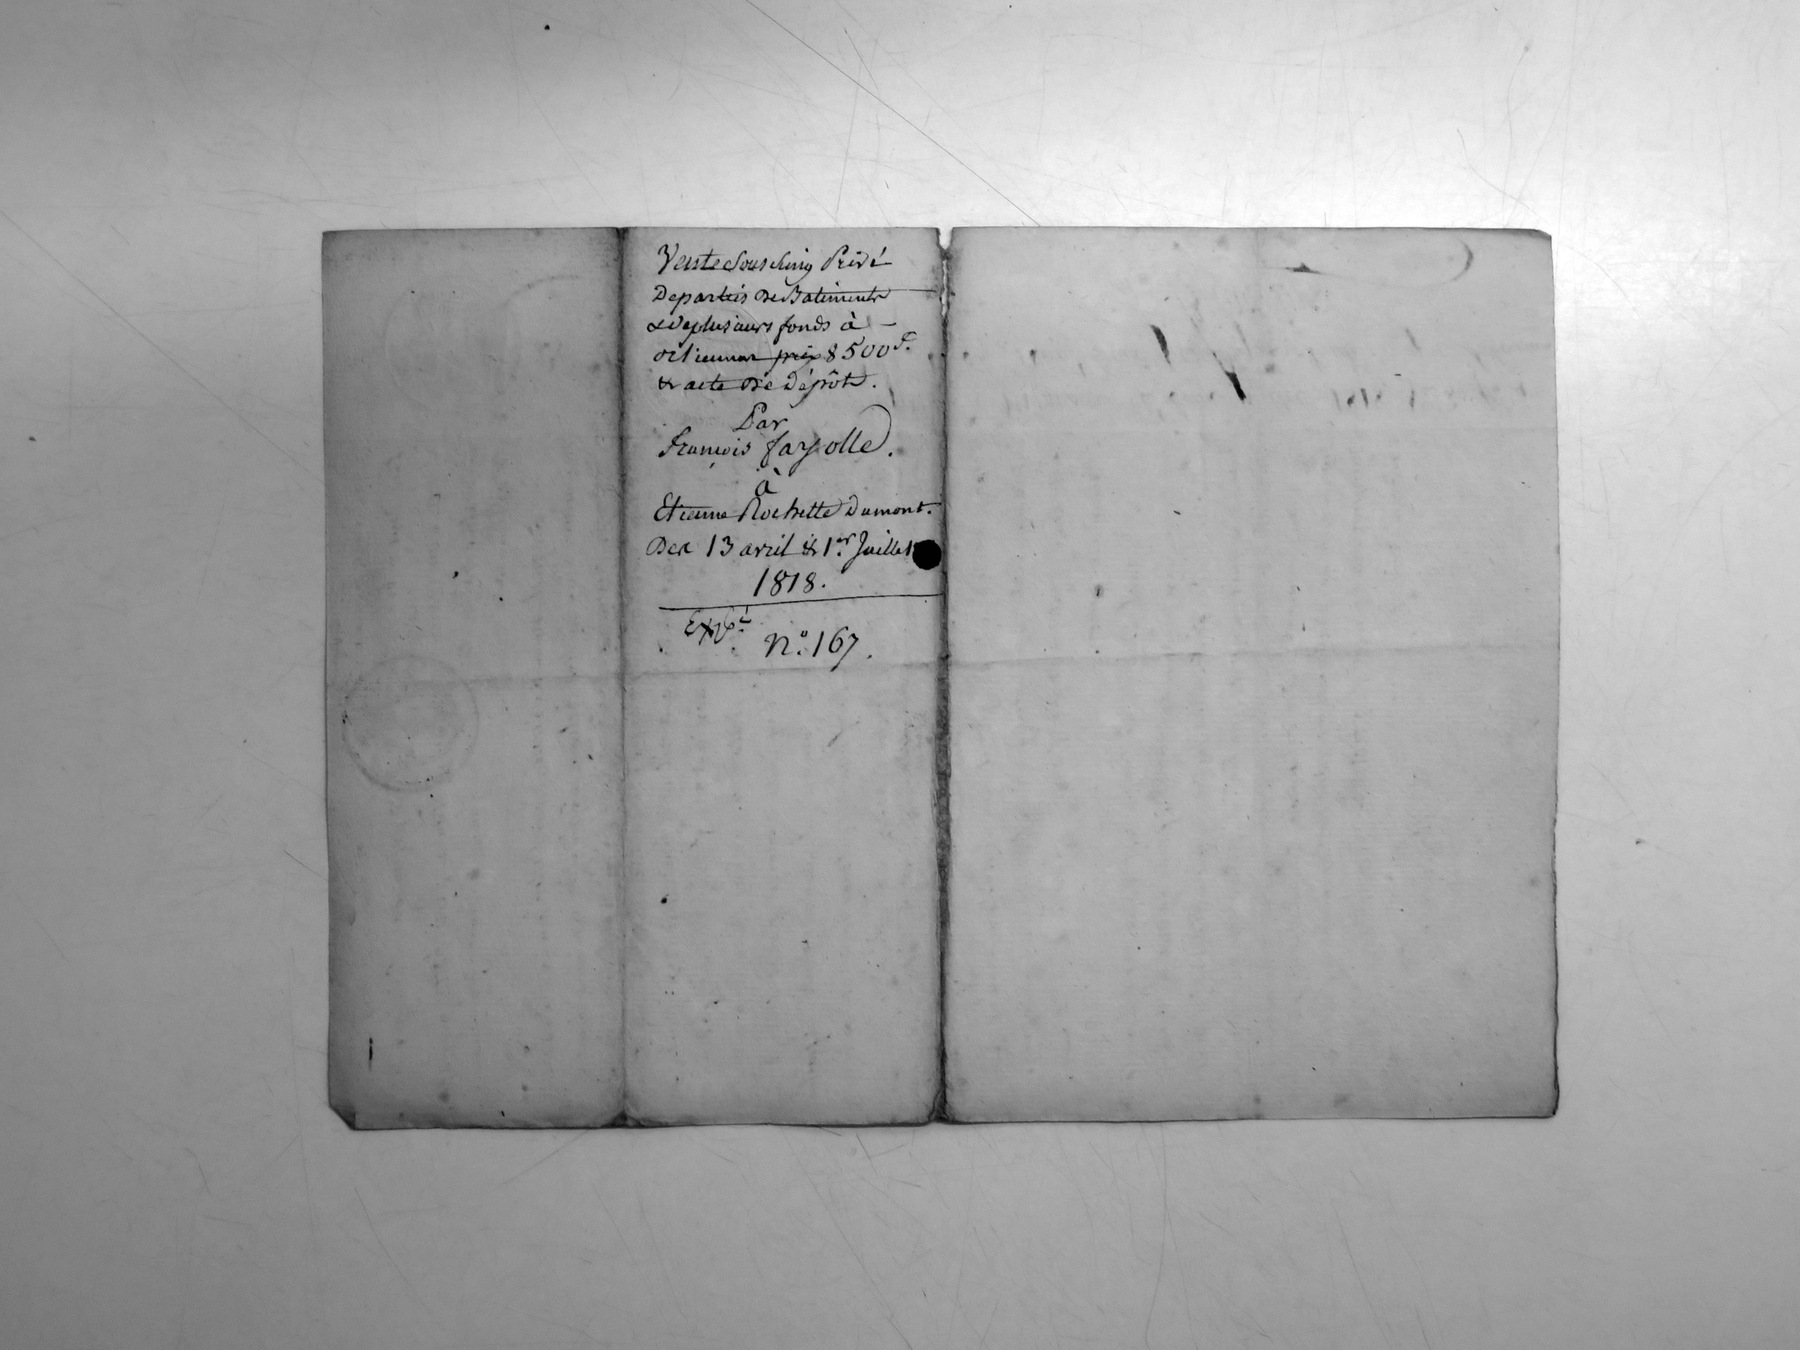 Vente Sous Seing Privé
De parties de Batiments
& de plusieurs fonds à
prix 8500 f.
& acte de Dépôt.
Par
François fayolle.
à
Etienne Rochette Dumont.
Des 13 avril & 1er Juillet
1818.
Expé.
N.° 167.